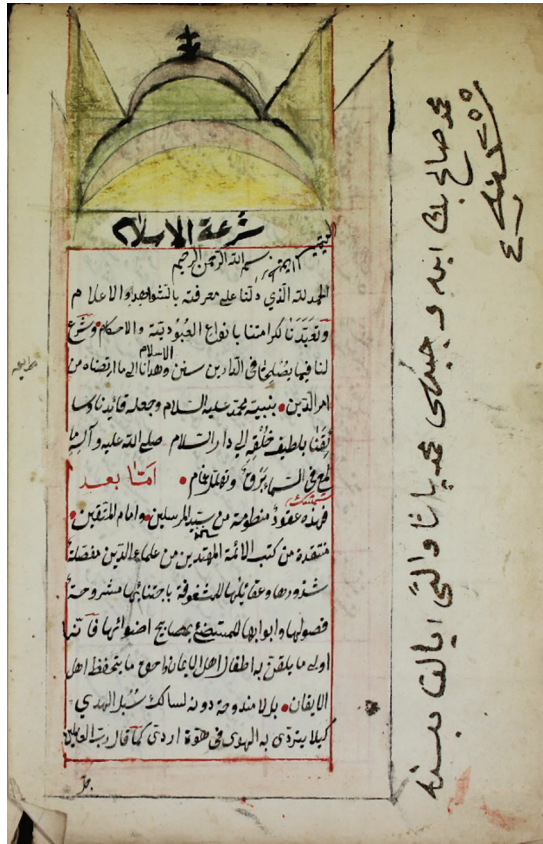 شرعة الاسلام
بسم الله الرحمن الرحيم
الحمد لله الذي دلنا على معرفته بالشواهد والاعلام
وتعبدنا كرامتنا بانواع العبودية والاحكام وشرع
لنا فيما يصلحنا فى الدارين سنن الاسلام وهدانا الى ما ارتضاه من
امر الدين بنبيه محمد عليه السلام وجعله قائدنا وسا
ئقنا بلطيف خلقه الى دار السلام صلى الله عليه وآله ما
لمع فى السماء برق وتهلل غمام اما بعد
فهذه عقود منظومة من سنن سيد المرسلين وامام المتقين
منتقدة من كتب الائمة المهتدين من علماء الدين مفصلة
شذورها وعقايلها للمشغوفة باجتنائها مشروحة
فصولها وابوابها للمستضئ بمصابيح اضوائها فانها
اولى ما يلقن به اطفال اهل الايمان واحق ما يتحفظ اهل
الايقان بل لا مندوحة دونه لسالك سبل الهدى
كيلا يتردى به الهوى فى هوة الردى كما قال رب العالمين
محمد صالح بك ابنه و محمد پاشا والى ايالت